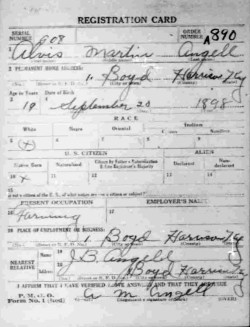 REGISTRATION CARD
SERIAL NUMBER 608 ORDER NUMBER A890
Alvis Martin Angell
2 PERMANENT HOME ADDRESS:
1 Boyd Harrison Ky
Age in Years Date of Birth
19 September 20 1898
RACE
White Negro Oriental
X
U. S. CITIZEN ALIEN
Native Born Naturalized Citizen by Father's Naturalization
Before Registrant's Majority
10 X
PRESENT OCCUPATION EMPLOYER'S NAME
Farming
PLACE OF EMPLOYMENT OR BUSINESS:
1 Boyd Harrison Ky
NEAREST RELATIVE
J B Angell
1 Boyd Harrison Ky
I AFFIRM THAT I HAVE VERIFIED ABOVE ANSWERS AND THAT THEY ARE TRUE
P. M. G. O.
Form No. 1 (Red)
A M Angell